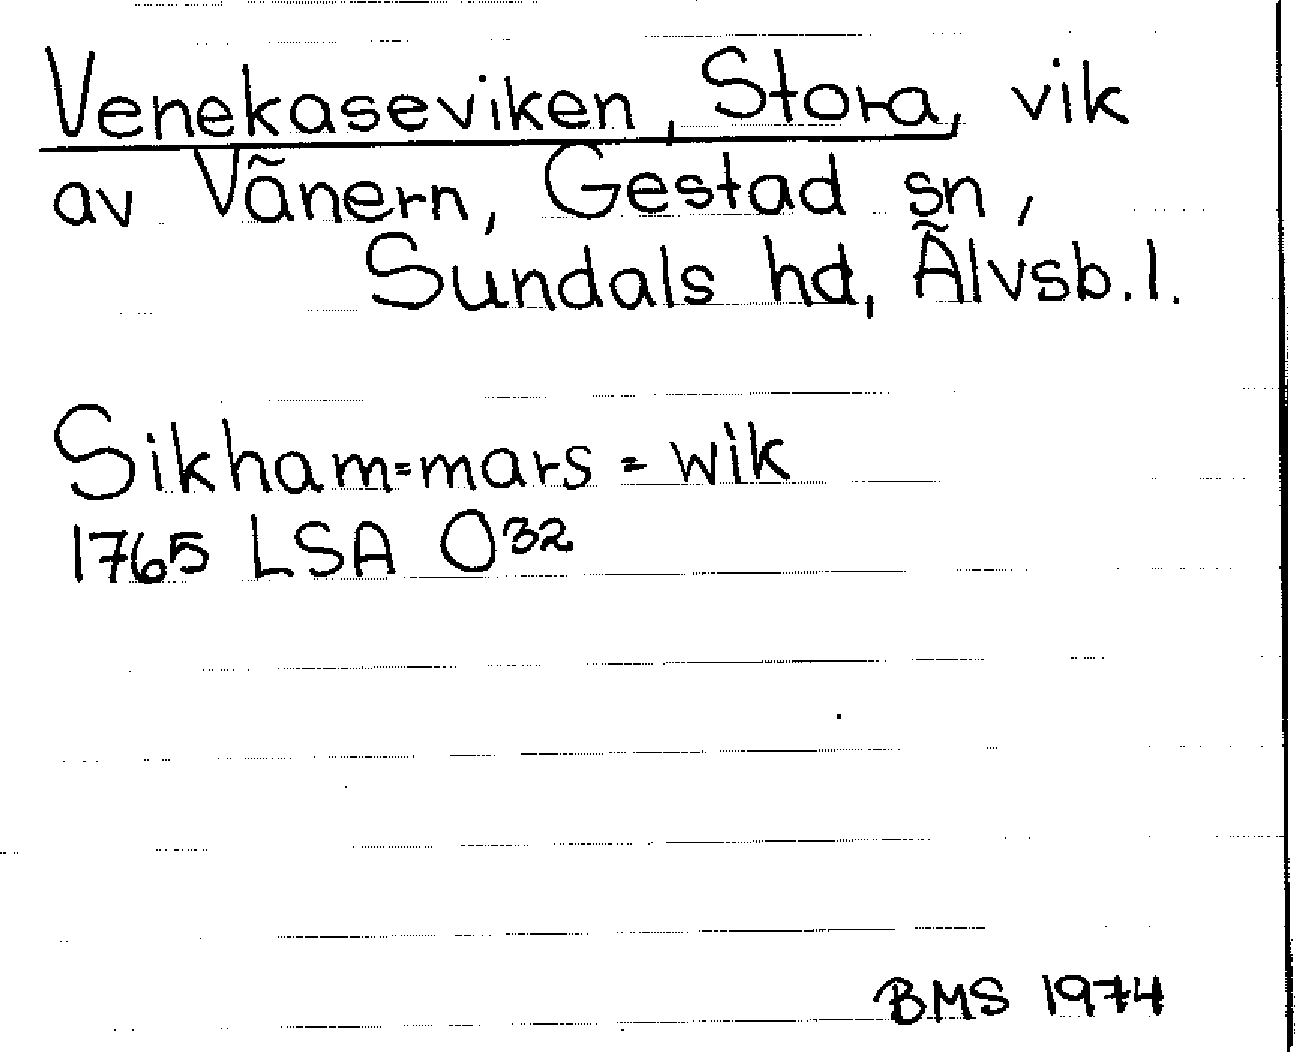 Venekaseviken, Stora, vik
av Vänern, Gestad sn,
Sundals hd, Älvsb. l.
Sikham=mars=wik
1765 LSA O32
BMS 1974